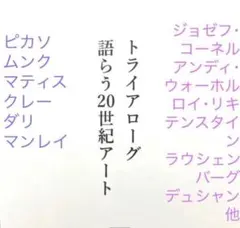 ピカソ
ムンク
マティス
クレー
ダリ
マンレイ
トライアローグ
語らう20世紀アート
ジョゼフ・
コーネル
アンディ・
ウォーホル
ロイ・リキ
テンスタイ
ン
ラウシェン
バーグ
デュシャン
他